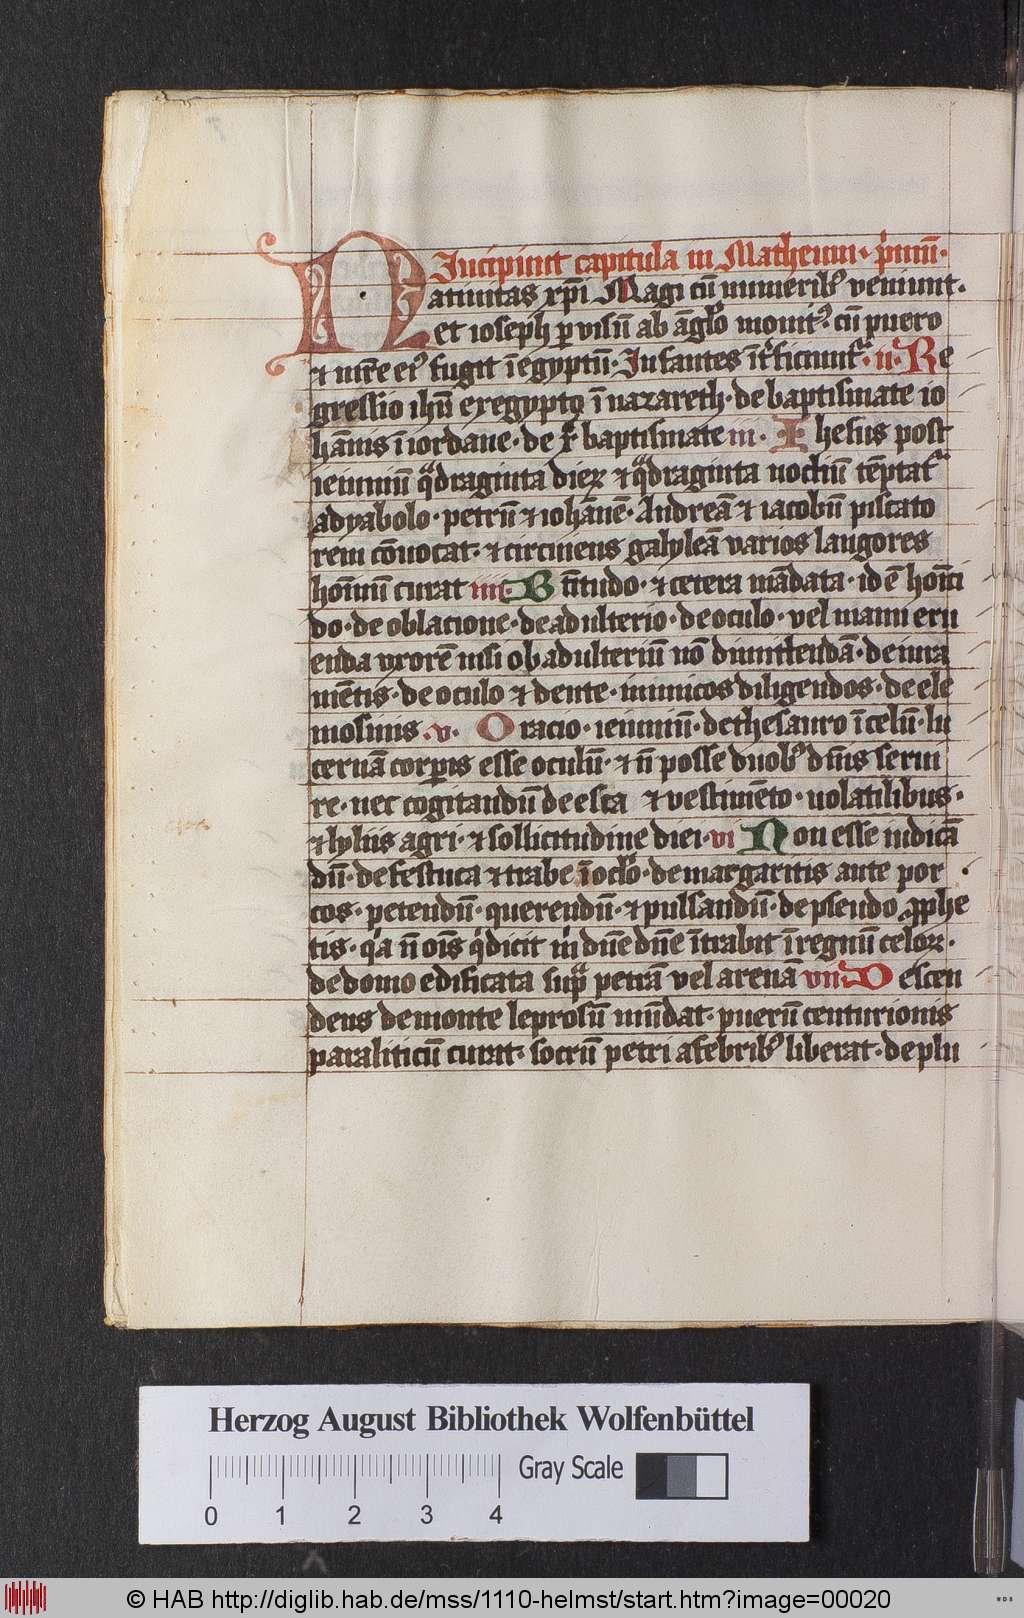 Incipiunt capitula in Matheum · p̃mũ ·
Natiuitas xp̃i Magi cũ munerib᷒ veniunt ·
et ioseph p visũ ab ãglo monit᷒ · cũ puero
⁊ mr̃e ei᷒ fugit ĩ egyptũ · Infantes ĩt̃ficiunt̃ · ii · Re
gressio ihũ ex egypto ĩ nazareth · de baptismate io
hãnis ĩ iordane · de xp̃i baptismate iii · Ihesus post
ieiuniũ q̃draginta dieꝝ ⁊ q̃draginta noctiũ tẽptat̃
a dyabolo · petrũ ⁊ iohãnẽ · Andreã ⁊ iacobũ piscato
rem cõuocat · ⁊ circuiens galyleã varios langores
hoĩnũ curat iiii · Btĩtudo · ⁊ cetera mãdata · id ẽ hoĩci
do · de oblacione · de adulterio · de oculo · vel manu eru
enda vxorẽ nisi ob adulteriũ nõ dimittendã · de iura
mẽtis · de oculo ⁊ dente · inimicos diligendos · de ele
mosinis · v · Oracio · ieiuniũ · de thesauro ĩ celũ · lu
cernã corpis esse oculũ · ⁊ ñ posse duob᷒ dñis serui
re · nec cogitandũ de esca ⁊ vestimẽto · uolatilibus ·
⁊ lyliis agri · ⁊ sollicitudine diei · vi Non esse iudicã
dũ · de festuca ⁊ trabe ĩ oclo · de margaritis ante por
cos · petendũ · querendũ · ⁊ pulsandũ · de pseudo ꝓphe
tis · q̃a ñ oĩs q̃ dicit m̃ dñe dñe ĩtrabit ĩ regnũ celoꝝ ·
de domo edificata sup̃ petrã vel arenã vii · Descen
dens de monte leprosũ mũdat · puerũ centurionis
paraliticũ curat · socrũ petri a febrib᷒ liberat · de plu
Herzog August Bibliothek Wolfenbüttel
Gray Scale
0 1 2 3 4
© HAB http://diglib.hab.de/mss/1110-helmst/start.htm?image=00020